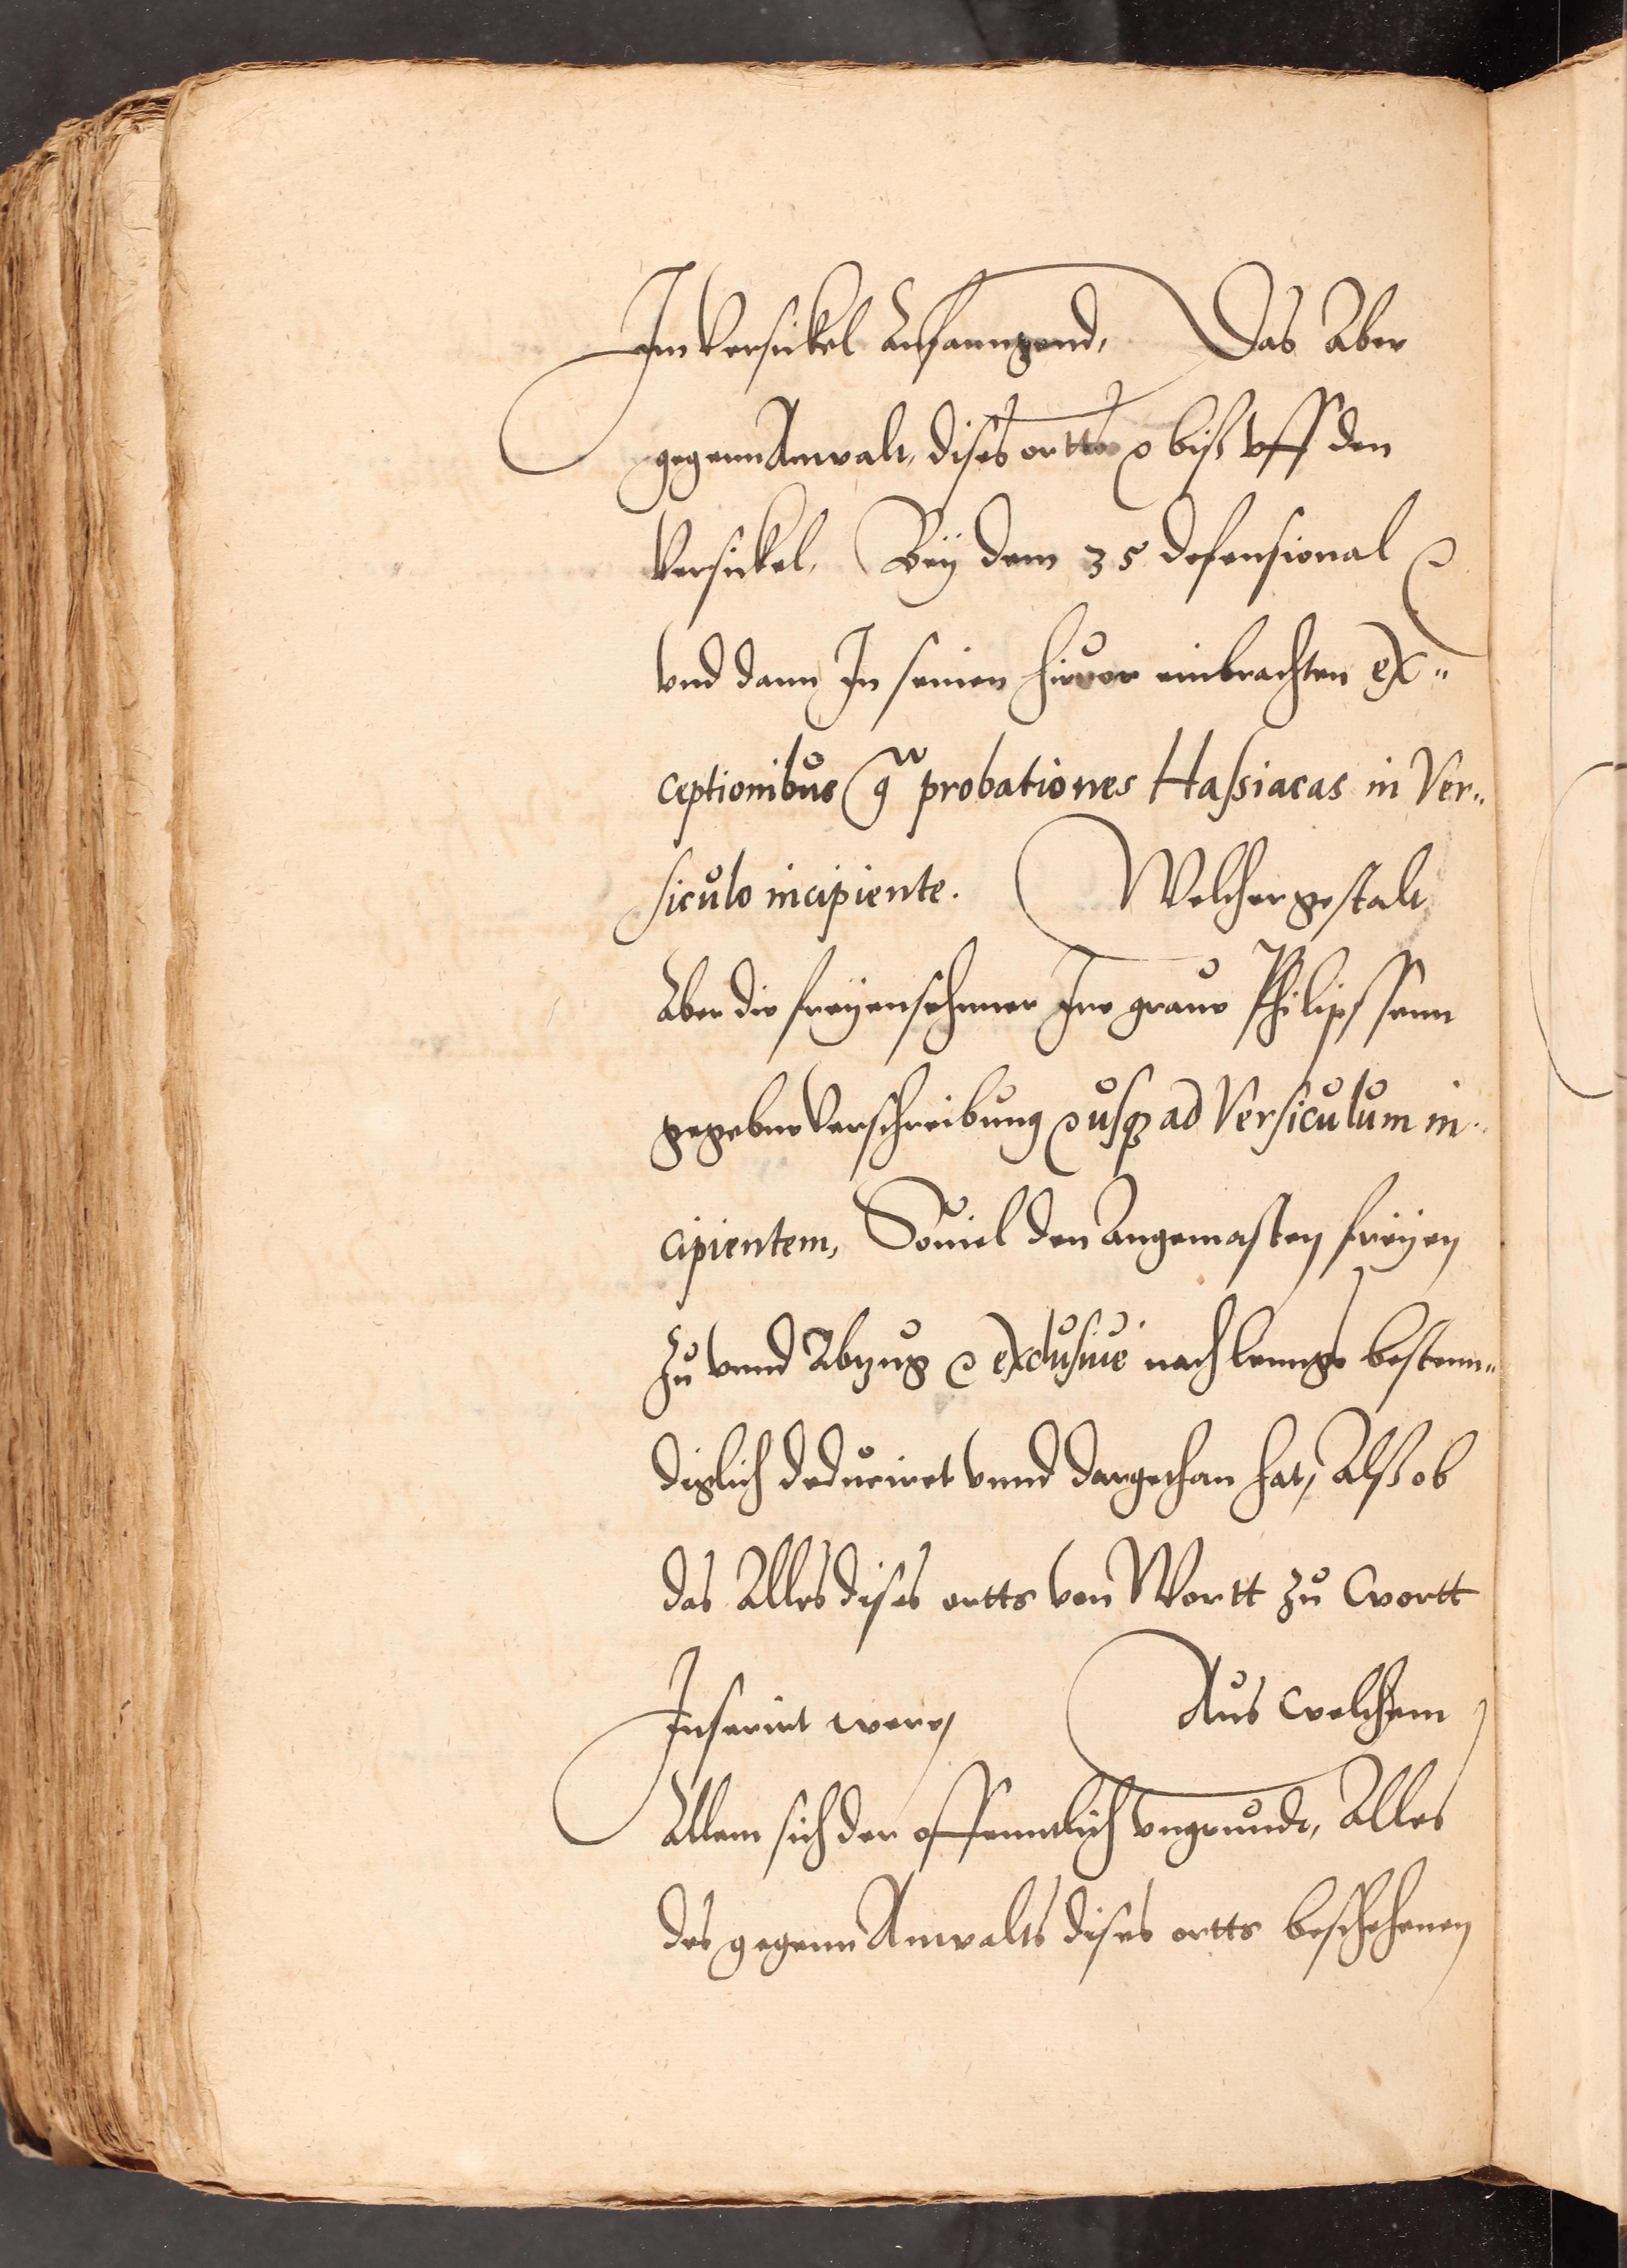 Im Versickel anfanngend, Das Aber
gegenn Anwalt, dises ortts ꝛc biß vff den
Versickel, Bey dem 35 defensional ꝛc
vnd dann In seinen hieuor einbrachten ex„
ceptionibus 9ᵃ probationes Haßiacas in Ver„
siculo incipiente. Welcher gestalt
Aber die freyensehner Ire graue Philipssenn
gegebne Verschreibung ꝛc usqꝫ ad Versiculum in„
cipientem, Souiel den Angemasten freyen
Zu vnnd Abzug ꝛc exclusiuè nach lennge bestenn„
diglich deduciret vnnd dargethan hat, Alß ob
das Alles dises ortts von Wortt zu Wortt
Inserirt were, Aus welchem
Allem sich der offenntlich vngrundt, Alles
des gegenn Anwalts dises ortts beschehenen